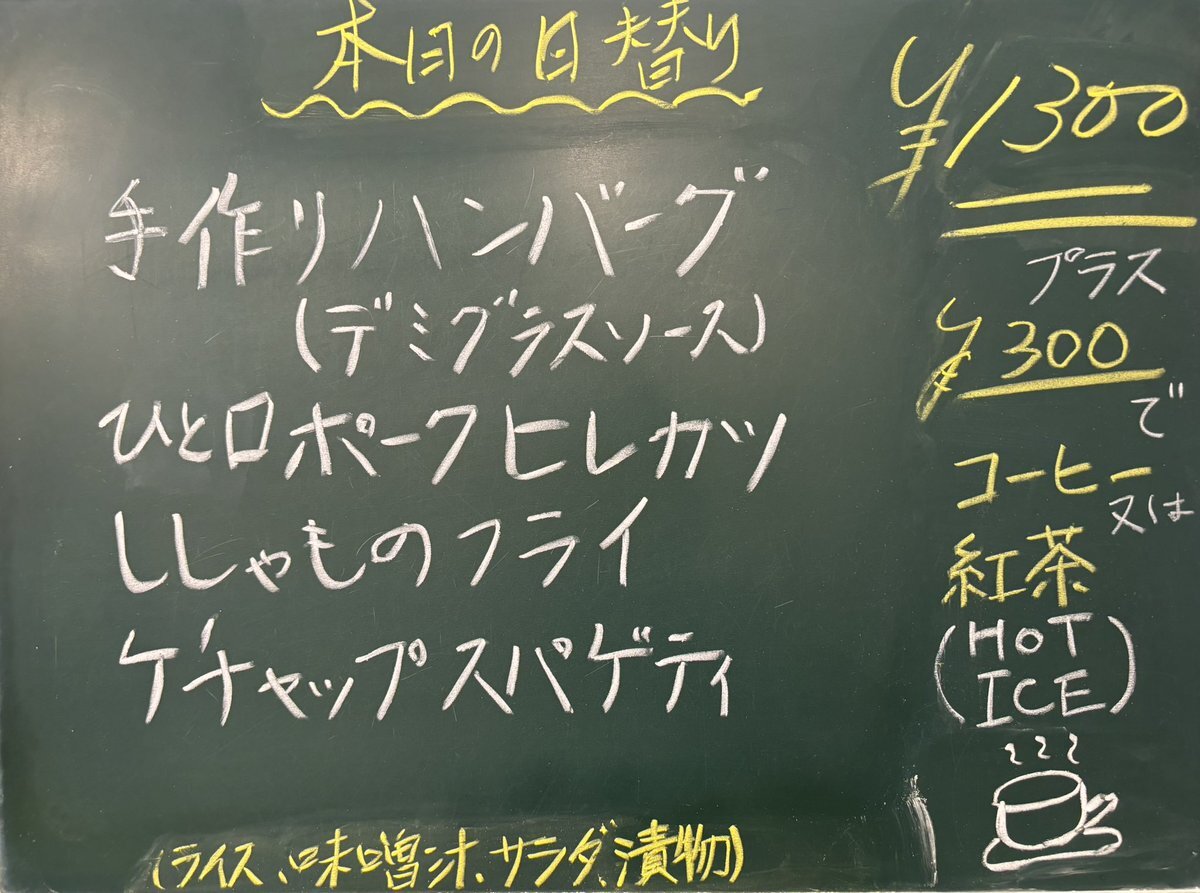 本日の日替り
手作りハンバーグ
(デミグラスソース)
ひと口ポークヒレカツ
ししゃものフライ
ケチャップスパゲティ
(ライス、味噌汁、サラダ、漬物)
¥1300
プラス
¥300
で
コーヒー
又は
紅茶
(HOT
ICE)